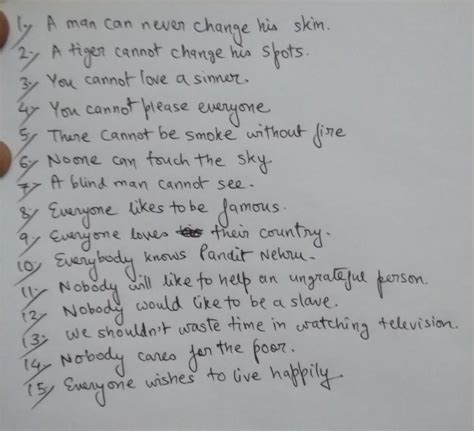 1) A man can never change his skin.
2) A tiger cannot change his spots.
3) You cannot love a sinner.
4) You cannot please everyone
5) There cannot be smoke without fire
6) Noone can touch the sky
7) A blind man cannot see.
8) Everyone likes to be famous.
9) Everyone loves their country.
10) Everybody knows Pandit Nehru.
11) Nobody will like to help an ungrateful person.
12) Nobody would like to be a slave.
13) We shouldn't waste time in watching television.
14) Nobody cares for the poor.
15) Everyone wishes to live happily.